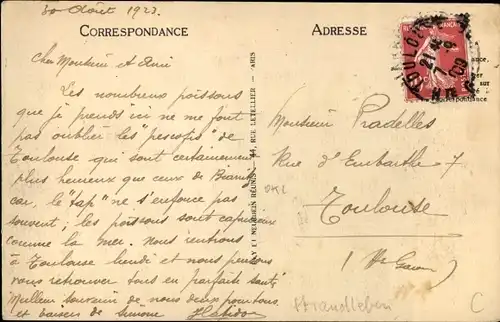 30 Août 1923.
CORRESPONDANCE
ADRESSE
Cher Monsieur et Ami
Les nombreux poissons
que je prends ici ne me font
pas oublier les "pescofis" de
Toulouse qui sont certainement
plus heureux que ceux de
car, le "tap" ne s'enfonce pas
souvent; les poissons sont capricieux
comme la mer. Nous rentrons
à Toulouse lundi et nous pensons
vous retrouver tous en parfaite santé
Meilleur souvenir de nous deux pour tous
et baisers de Simone
Monsieur Pradelles
Rue d'Embarthe 7
Toulouse
(Hte Gar
RUE LETELLIER — PARIS
TOULOUSE
Correspondance
Strandleben
C